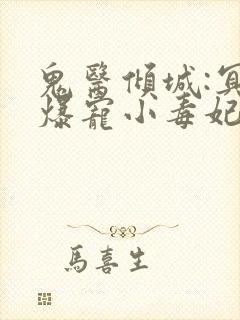 鬼醫傾城:冥
爆寵小毒妃
馬喜生